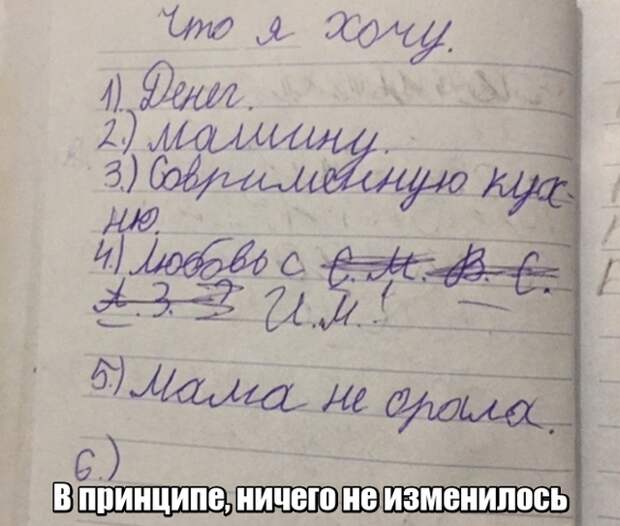 Что я хочу.
1). Денег.
2.) машину.
3.) Совримённую кух-
ню.
4.) Любовь с С. М. В. С.
А. З. И.М.!
5.) Мама не орала.
6.)
В принципе, ничего не изменилось